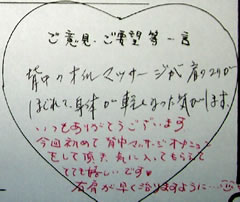 ご意見、ご要望等一言
背中のオイルマッサージが肩のコリが
ほぐれて、身体が軽くなった気がします。
いつもありがとうございます
今回初めて背中マッサージオプション
をして頂き、気に入ってもらえて
とても嬉しいです。
右肩が早く治りますように…